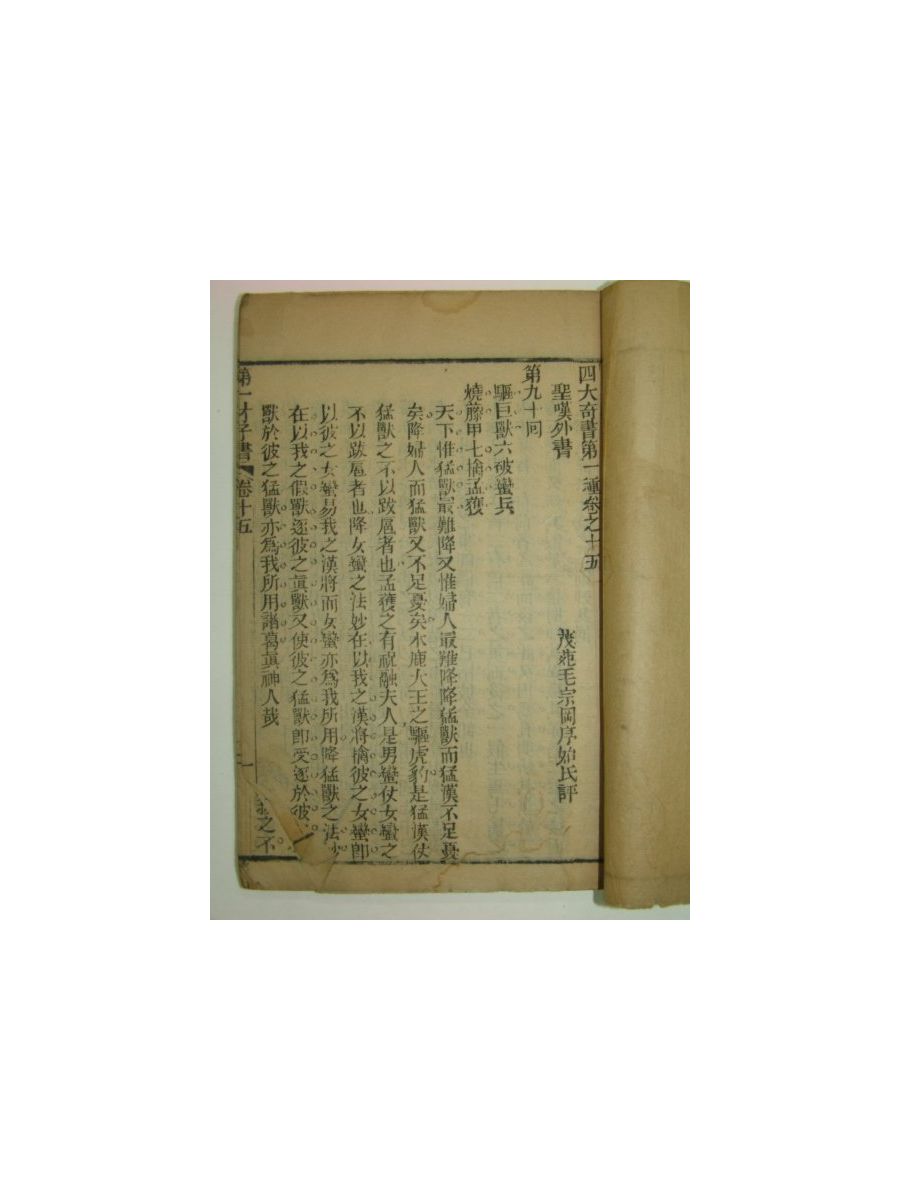 四大奇書第一種卷之十五
聖嘆外書
茂苑毛宗岡序始氏評
第九十回
驅巨獸六破蠻兵
燒藤甲七擒孟獲
天下惟猛獸最難降又惟婦人最難降降猛獸而猛漢不足憂
矣降婦人而猛獸又不足憂矣木鹿大王之驅虎豹是猛漢仗
猛獸之不以跋扈者也孟獲之有祝融夫人是男蠻仗女蠻之
不以跋扈者也降女蠻之法妙在以我之漢將擒彼之女蠻即
以彼之女蠻易我之漢將而女蠻亦爲我所用降猛獸之法妙
在以我之假獸逐彼之眞獸又使彼之猛獸即受逐於彼
獸於彼之猛獸亦爲我所用諸葛眞神人哉
之不
第一才子書 卷十五 一